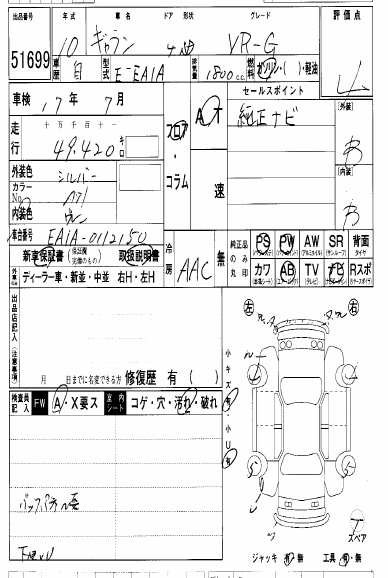 出品番号 年式 車名 ドア 形状 グレード 評価点
51699 10 ギャラン 4 VR-G 4
車歴 自 型式 E-EA1A 排気量 1800 c.c. 燃料 ガソリン・( )・軽油
車検 17年 7月 セールスポイント
走行 十万千百十一 49,420 キロ フロア・コラム AT 速 純正ナビ 【外装】 B
外装色 シルバー
カラーNo. A71
内装色 グレー 【内装】 B
車台番号 EA1A-0112150 冷房 AAC 無 純正品のみ丸印 PS PW AW SR 背面
(パワステ) (パワーウィンド) (アルミホイル) (サンルーフ) タイヤ
新車保証書 (保証欄完備のもの) 取扱説明書
ディーラー車・新並・中並 右H・左H カワ AB TV ナビ Rスポ
(テレビ) (リヤースポイラ)
出品店記入 (注意事項) 左 右
月 日までに名変できる方 修復歴 有 ( )
小キズ 有・小U 有
検査員記入 FW A・X要ス 室内シート コゲ・穴・汚れ・破れ
バックパネル歪
下廻りU
スペア
ジャッキ 有・無 工具 有・無